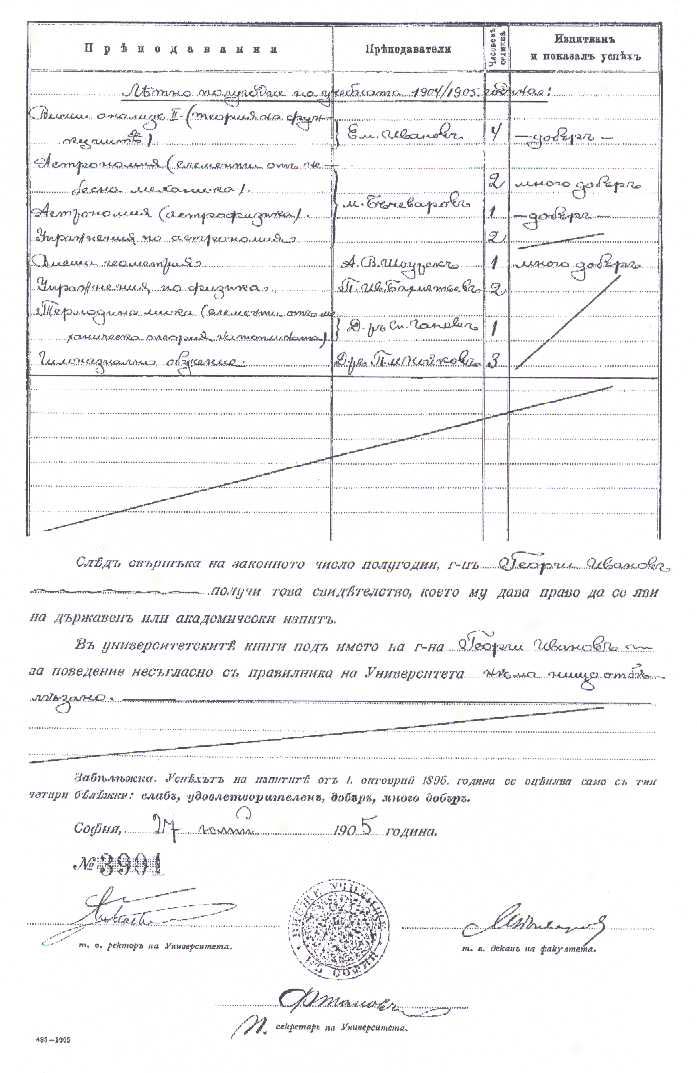 Прѣподавания Прѣподаватели Часовенъ Испитванъ и показалъ успѣхъ
Лѣтно полугодие на учебната 1904/1905 година:
Висши анализъ II (теория на функциитѣ). Ем. Ивановъ 4 —добъръ—
Астрономия (елементи отъ небесна механика). М. Бъчеваровъ 2 много добъръ
Астрономия (астрофизика). 1 —добъръ—
Упражнения по астрономия 2
Висши геометрия А. В. Шоурекъ 1 много добъръ
Упражнения по физика. П. Ив. Бахметьевъ 2
Термодинамика (елементи отъ механическа теория на топлината) Д-ръ Сп. Ганевъ 1
обучение. Д-ръ П. М. Нойковъ 3
Слѣдъ свършъка на законното число полугодии, г-нъ Георги Ивановъ
получи това свидѣтелство, което му дава право да се яви
на държавенъ или академически изпитъ.
Въ университетскитѣ книги подъ името на г-на Георги Ивановъ
за поведение несъгласно съ правилника на Университета нѣма нищо отбѣ-
лѣзано.
Забѣлѣжка. Успѣхътъ на изпититѣ отъ 1. октоврий 1896. година се оцѣнява само съ тия
четири бѣлѣжки: слабъ, удовлетворителенъ, добъръ, много добъръ.
София, 27 1905 година.
№ 3901
т. в. ректоръ на Университета.
т. в. деканъ на факултета.
П. секретарь на Университета.
485—1905